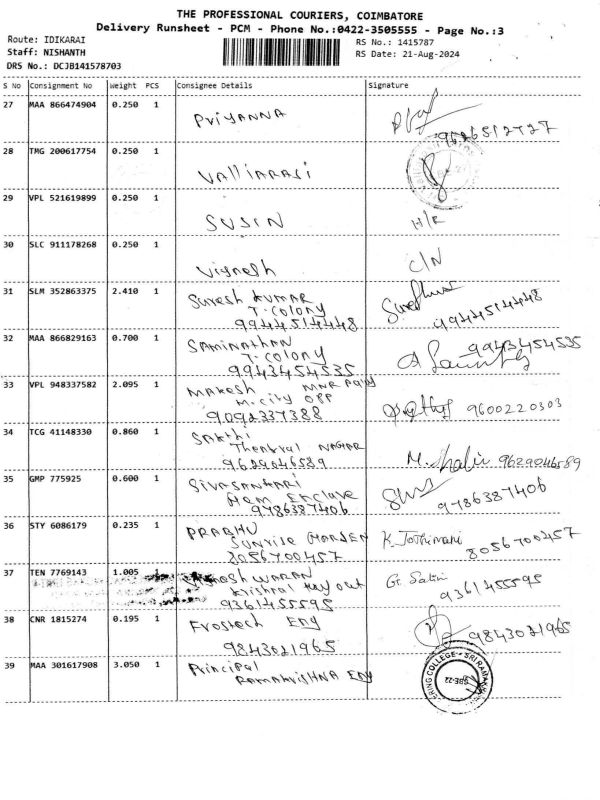 THE PROFESSIONAL COURIERS, COIMBATORE
Delivery Runsheet - PCM - Phone No.:0422-3505555 - Page No.:3
Route: IDIKARAI
RS No.: 1415787
Staff: NISHANTH
RS Date: 21-Aug-2024
DRS No.: DCJB141578703
S No Consignment No Weight PCS Consignee Details Signature
27 MAA 866474904 0.250 1 PRIYANNA
9626512727
28 TMG 200617754 0.250 1 Valliarasi
29 VPL 521619899 0.250 1 SUSIN H/R
30 SLC 911178268 0.250 1 Vignesh C/N
31 SLM 352863375 2.410 1 Suresh KUMAR
T-Colony
9944514448 9944514448
32 MAA 866829163 0.700 1 SAMINATHAN
T-Colony
9943454535 9943454535
33 VPL 948337582 2.095 1 MAKESH
M-City OPP
9092337388 9600220303
34 TCG 41148330 0.860 1 SAKTHI
Thenkral NAGAR
9629046589 9629046589
35 GMP 775925 0.600 1 SIVASANKARI
Enclave
9786387406 9786387406
36 STY 6086179 0.235 1 PRABHU
SUNRISE GARDEN
8056700457 K. Jothimani 8056700457
37 TEN 7769143 1.005 1
9361455595 9361455595
38 CNR 1815274 0.195 1 Frostech Eng
9843021965 9843021965
39 MAA 301617908 3.050 1 Principal
RAMAKRISHNA Eng